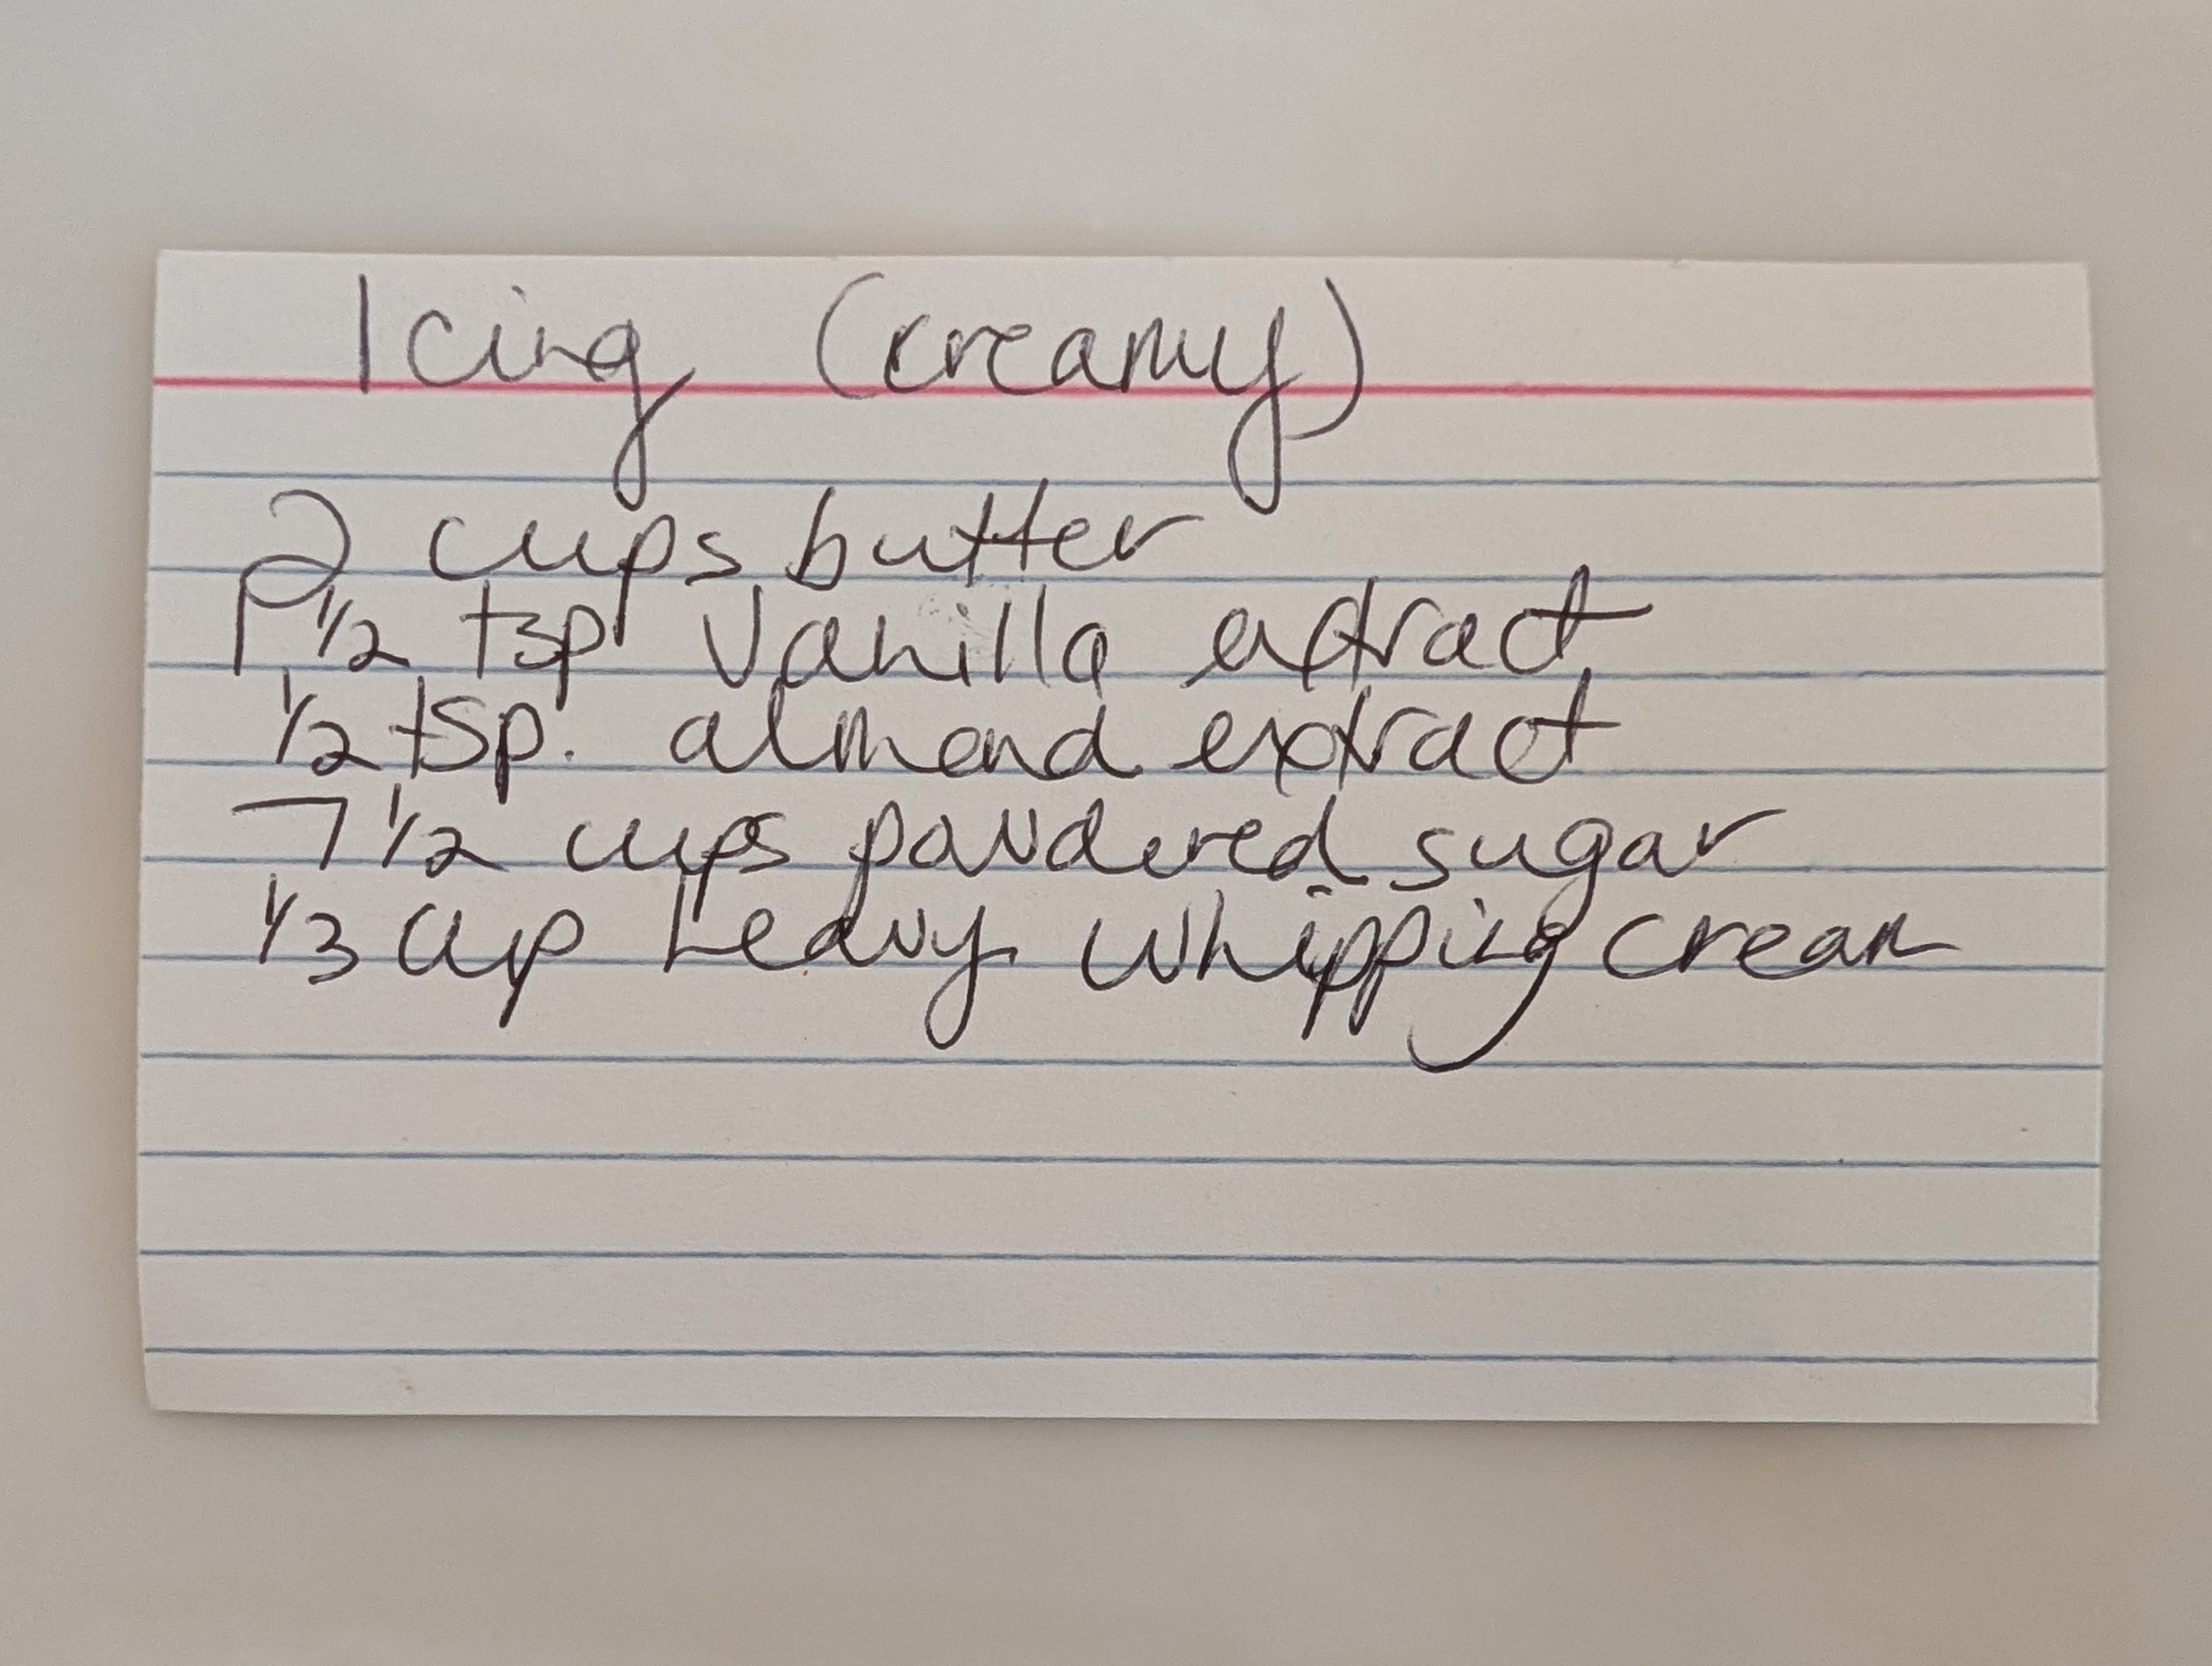 Icing (creamy)
2 cups butter
1 1/2 tsp vanilla extract
1/2 tsp. almond extract
7 1/2 cups powdered sugar
1/3 cup heavy whipping cream